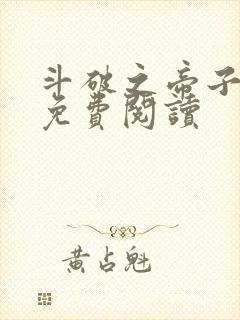 斗破之帝子
免費閱讀
黃占魁